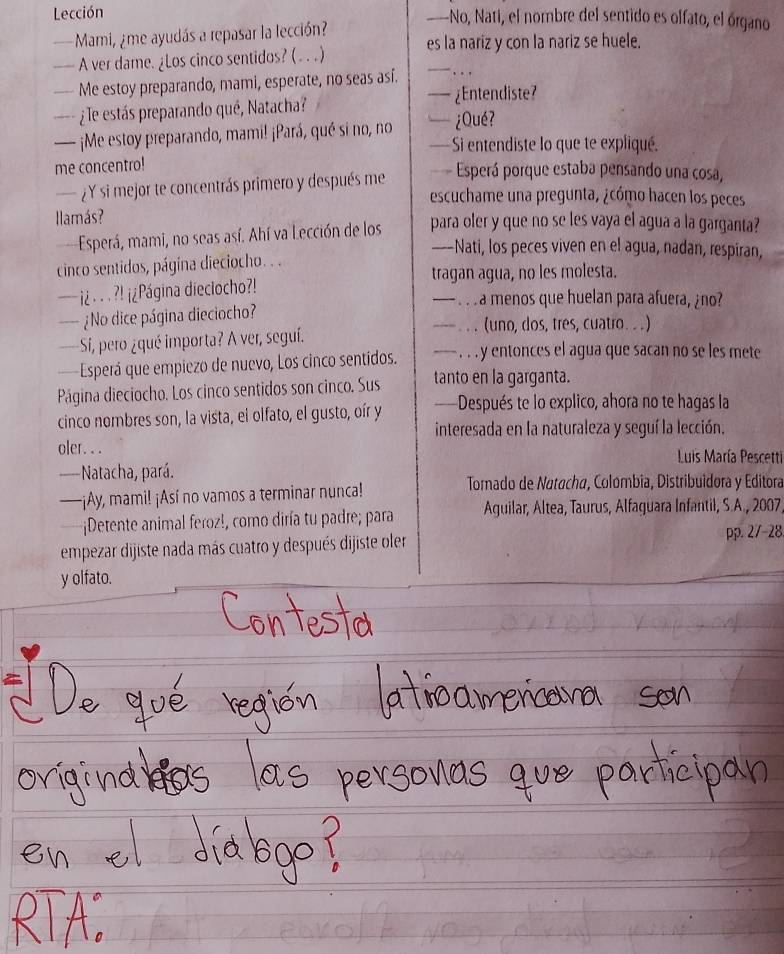 Lección
—Mami, ¿me ayudás a repasar la lección?
— A ver dame. ¿Los cinco sentidos? (. . .)
— Me estoy preparando, mami, esperate, no seas así.
— ¿Te estás preparando qué, Natacha?
— ¡Me estoy preparando, mami! ¡Pará, qué si no, no
me concentro!
— ¿Y si mejor te concentrás primero y después me
llamás?
—Esperá, mami, no seas así. Ahí va Lección de los
cinco sentidos, página dieciocho. . .
—¡¿ . . . ?! ¡¿Página dieciocho?!
— ¿No dice página dieciocho?
—Sí, pero ¿qué importa? A ver, seguí.
—Esperá que empiezo de nuevo, Los cinco sentidos.
Página dieciocho. Los cinco sentidos son cinco. Sus
cinco nombres son, la vista, el olfato, el gusto, oír y
oler. . .
—Natacha, pará.
—¡Ay, mami! ¡Así no vamos a terminar nunca!
—¡Detente animal feroz!, como diría tu padre; para
empezar dijiste nada más cuatro y después dijiste oler
y olfato.
—No, Nati, el nombre del sentido es olfato, el órgano
es la nariz y con la nariz se huele.
— . . .
— ¿Entendiste?
— ¿Qué?
—Si entendiste lo que te expliqué.
— Esperá porque estaba pensando una cosa,
escuchame una pregunta, ¿cómo hacen los peces
para oler y que no se les vaya el agua a la garganta?
—Nati, los peces viven en el agua, nadan, respiran,
tragan agua, no les molesta.
— . . . a menos que huelan para afuera, ¿no?
— . . . (uno, dos, tres, cuatro. . .)
— . . . y entonces el agua que sacan no se les mete
tanto en la garganta.
—Después te lo explico, ahora no te hagas la
interesada en la naturaleza y seguí la lección.
Luis María Pescetti
Tomado de Natacha, Colombia, Distribuidora y Editora
Aguilar, Altea, Taurus, Alfaguara Infantil, S.A., 2007,
pp. 27-28.
Contesta
=¿De qué región latinoamericana son
originarias las personas que participan
en el diálogo?
RTA: